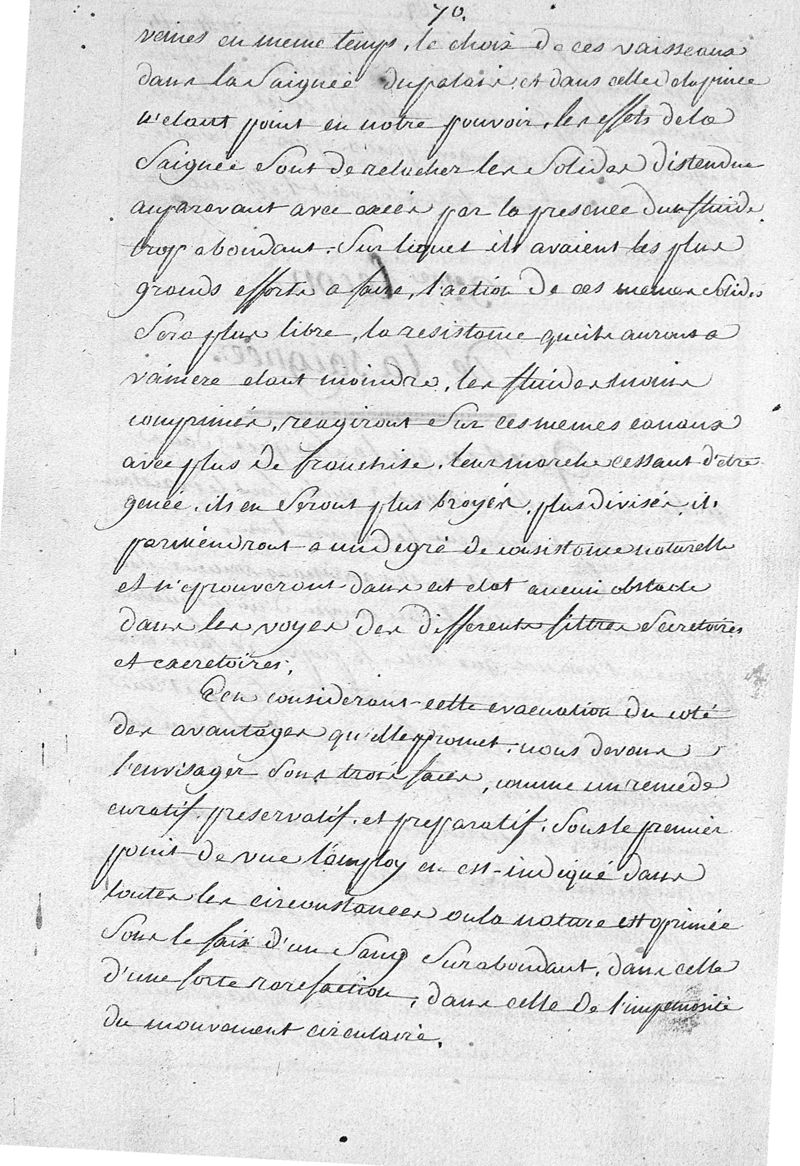 70.
veines en meme temps, le choix de ces vaisseaux
dans la Saignée du palais, et dans celle de la pince
n'etant point en notre pouvoir, les effets de la
Saignée Sont de relacher les Solides distendue
auparavant avec excès par la presence d'un fluide
trop abondant. Sur lequel ils avaient les plus
grands efforts a faire, l'action de ces memes Solides
Sera plus libre, la resistance qu'ils auront a
vaincre etant moindre, les fluides moins
comprimés, reagiront Sur ces memes canaux
avec plus de franchise, leur marche cessant d'etre
genée, ils en Seront plus broyés, plus divisés, ils
parviendront a un degré de consistance naturelle
et n'eprouveront dans cet etat aucun obstacle
dans les voyes des differents filtres Secretoires
et excretoires;
En considerant cette evacuation du coté
des avantages qu'elle promet, nous devons
l'envisager Sous trois faces, comme un remede
curatif, preservatif, et preparatif. Sous le premier
point de vue l'employ en est indiqué dans
toutes les circonstances ou la nature est oprimée
Sous le faix d'un Sang Surabondant, dans celle
d'une forte rarefaction, dans celle de l'impetuosité
du mouvement circulaire.